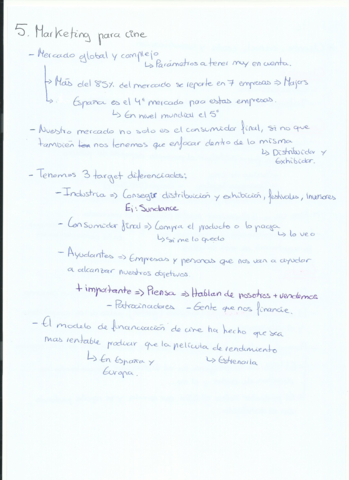 5. Marketing para cine
- Mercado global y complejo
↳ Parámetros a tener muy en cuenta.
↳ Más del 85% del mercado se reparte en 7 empresas ⇒ Majors
↳ España es el 4º mercado para estas empresas.
↳ En nivel mundial el 5º
- Nuestro mercado no solo es el consumidor final, si no que
también nos tenemos que enfocar dentro de la misma
↳ Distribuidor y
Exhibidor.
- Tenemos 3 target diferenciados:
- Industria ⇒ Conseguir distribución y exhibición, festivales, inversores
Ej: Sundance
- Consumidor final ⇒ Compra el producto o la paga
↳ la veo
↳ si me lo quedo
- Ayudantes ⇒ Empresas y personas que nos van a ayudar
a alcanzar nuestros objetivos.
+ importante ⇒ Prensa ⇒ Hablan de nosotros + vendemos
- Patrocinadores - Gente que nos financie.
- El modelo de financiación de cine ha hecho que sea
mas rentable producir que la película de rendimiento
↳ En España y
↳ Estrenarla
Europa.